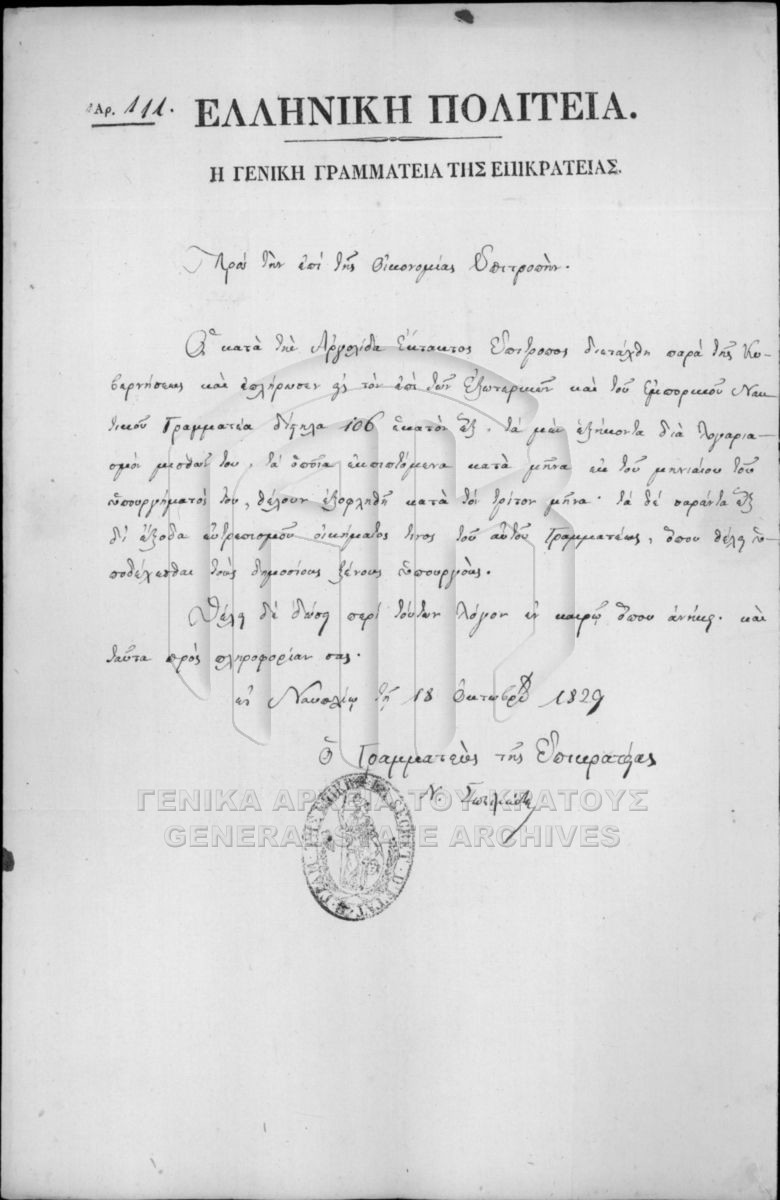 Αρ. 111.
ΕΛΛΗΝΙΚΗ ΠΟΛΙΤΕΙΑ.
Η ΓΕΝΙΚΗ ΓΡΑΜΜΑΤΕΙΑ ΤΗΣ ΕΠΙΚΡΑΤΕΙΑΣ.
Πρὸς τὴν ἐπὶ τῆς Οἰκονομίας Ἐπιτροπήν.
Ὁ κατὰ τὴν Ἀργολίδα Ἔκτακτος Ἐπίτροπος διετάχθη παρὰ τῆς Κυ-
βερνήσεως καὶ ἐπλήρωσεν εἰς τὸν ἐπὶ τῶν Ἐξωτερικῶν καὶ τοῦ Ἐμπορικοῦ Ναυ-
τικοῦ Γραμματέα δίστηλα 106 ἑκατὸν ἕξ. τὰ μὲν ἑξήκοντα διὰ λογαρια-
σμὸν μισθοῦ του, τὰ ὁποῖα ἐκπιπτόμενα κατὰ μῆνα ἐκ τοῦ μηνιαίου τοῦ
ὑπουργήματός του, θέλουν ἐξοφληθῆ κατὰ τὸν τρίτον μῆνα· τὰ δὲ σαράντα ἓξ
δι' ἔξοδα εὐτρεπισμοῦ οἰκήματός τινος τοῦ αὐτοῦ Γραμματέως, ὅπου θέλει ὑ-
ποδέχεσθαι τοὺς δημοσίους ξένους ὑπουργούς.
Θέλει δὲ δώσῃ περὶ τούτων λόγον ἐν καιρῷ ὅπου ἀνήκει. καὶ
ταῦτα πρὸς πληροφορίαν σας.
ἐν Ναυπλίῳ τῇ 18 Ὀκτωβρίου 1829
Ὁ Γραμματεὺς τῆς Ἐπικρατείας
Ν.
ΓΕΝΙΚΑ ΑΡΧΕΙΑ ΤΟΥ ΚΡΑΤΟΥΣ
GENERAL STATE ARCHIVES
SECRET. D'ETAT